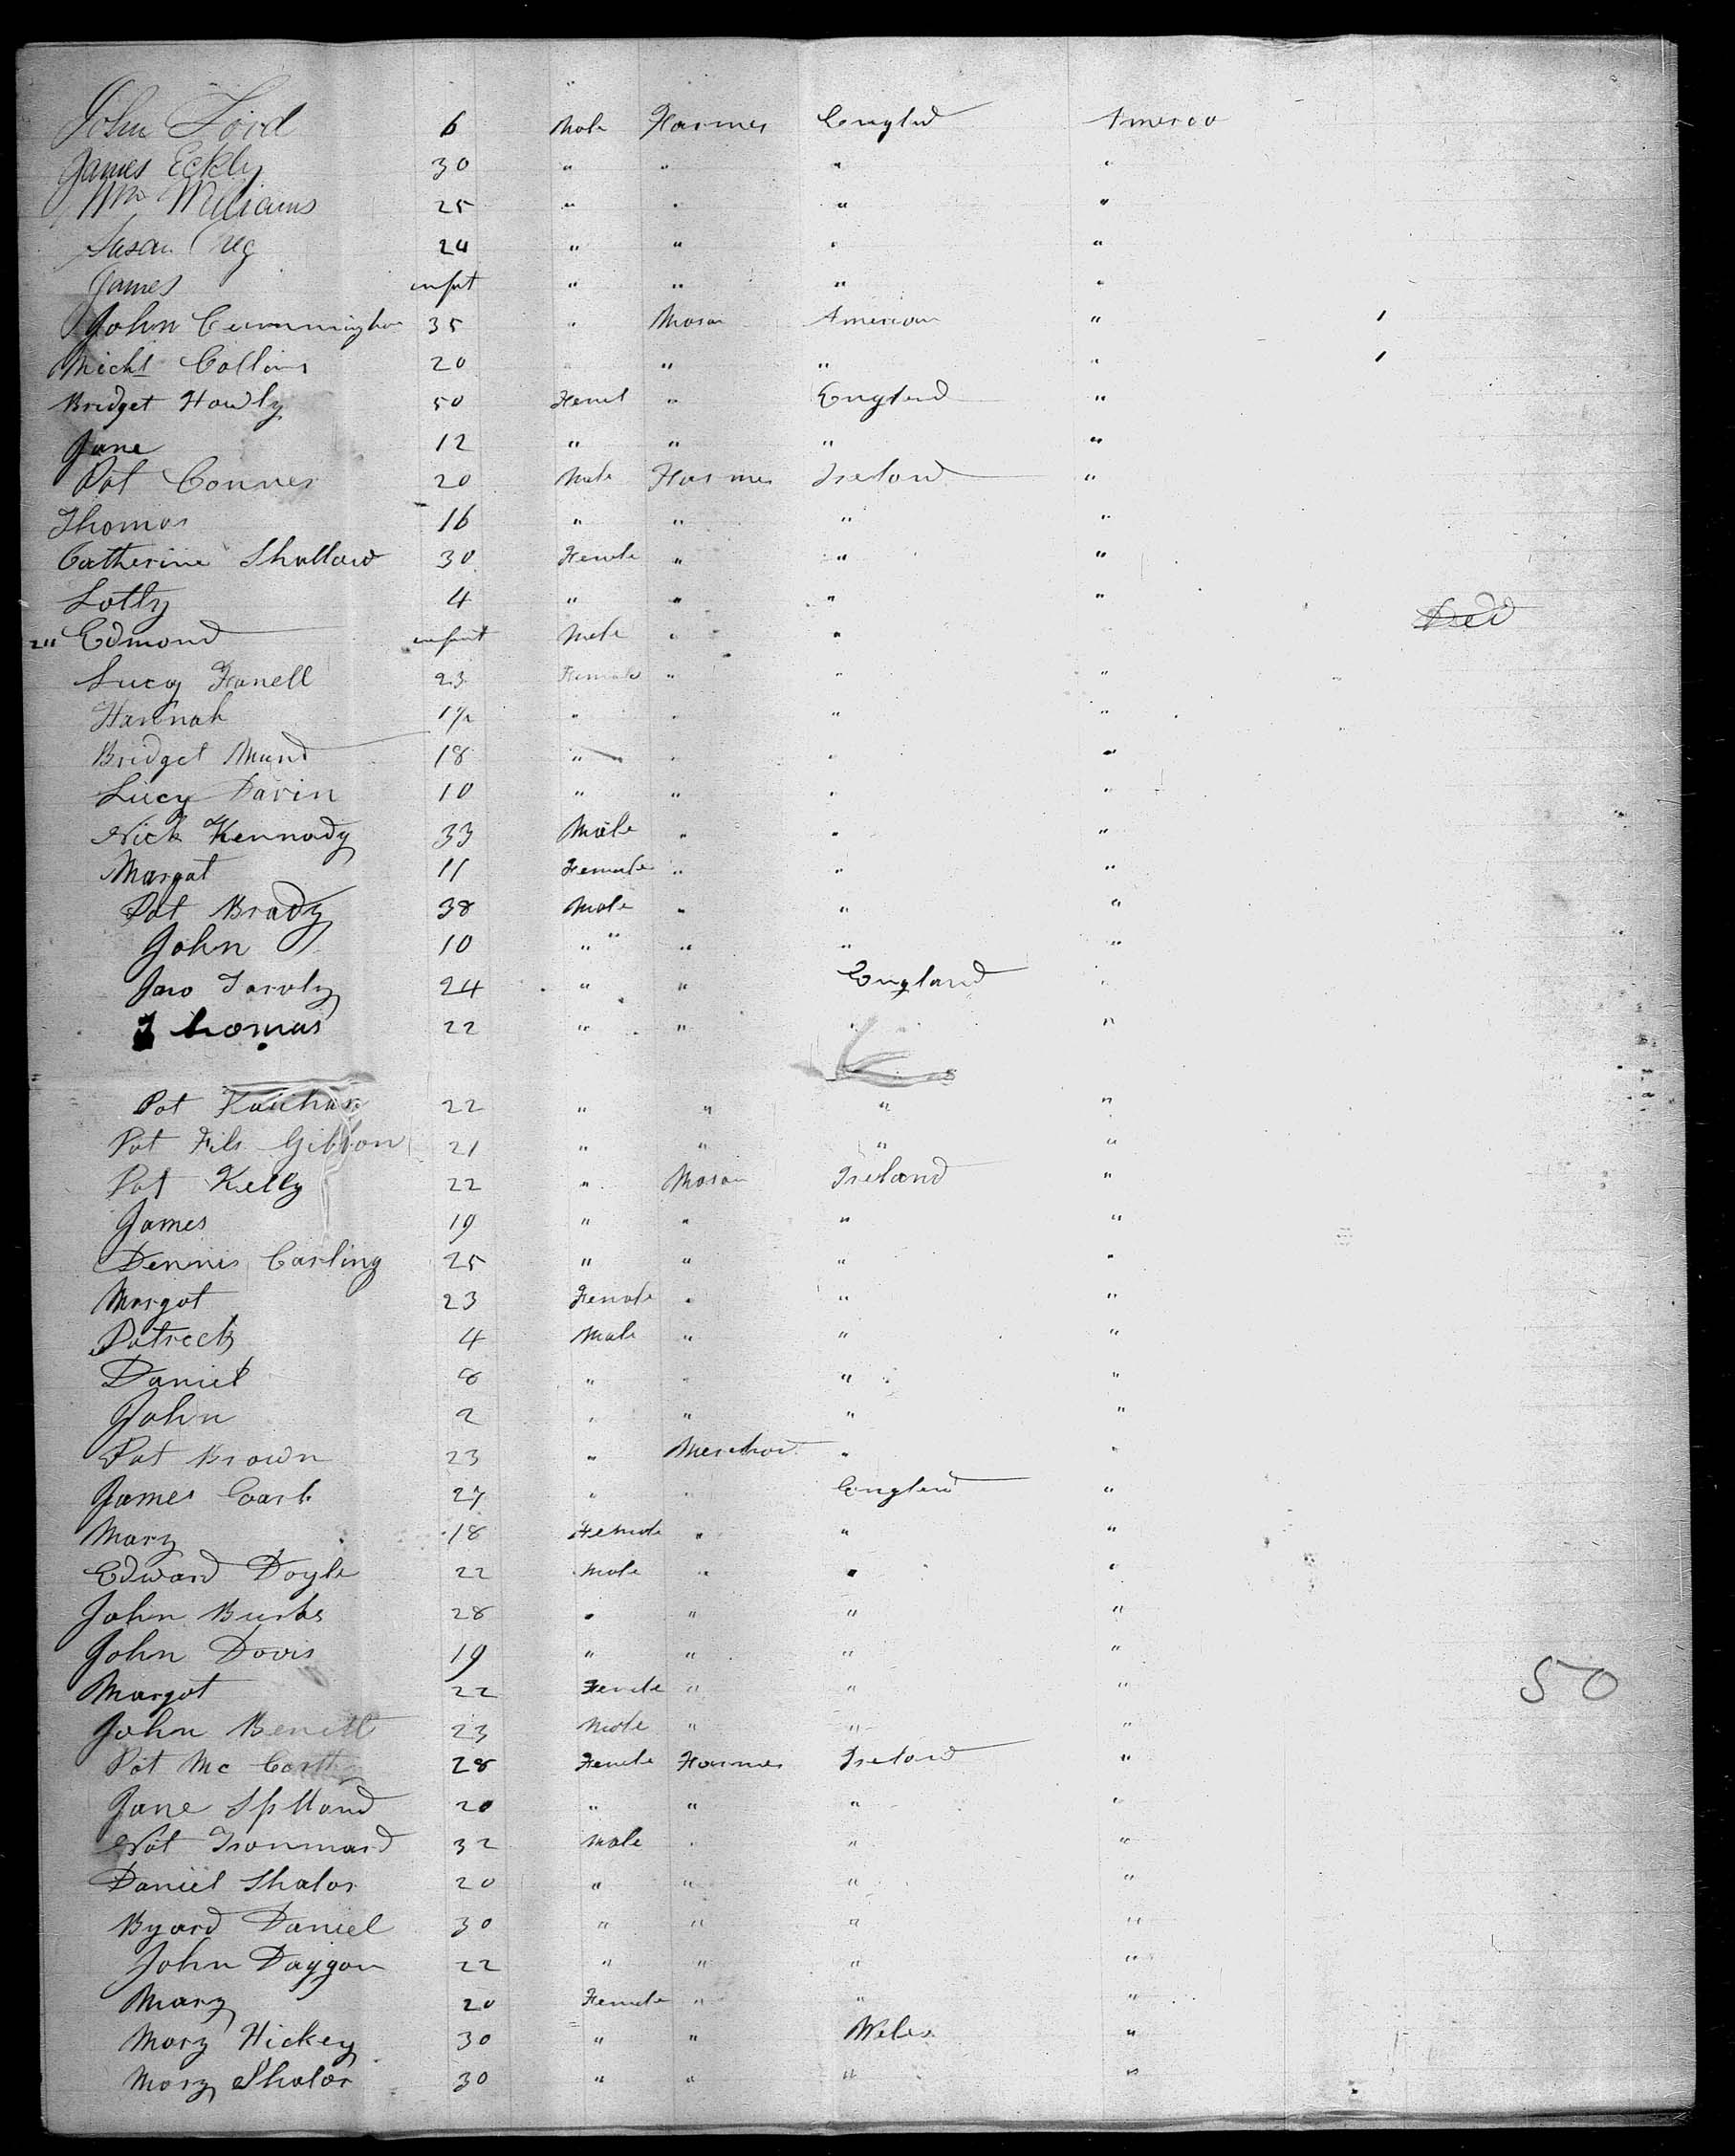 John Ford 6 Male Farmer Englnd America
James Eckly 30 " " " "
Wm Williams 25 " " " "
Susan 24 " " " "
James infnt " " " "
John Cunningham 35 " Mason American " 1
Michl Collins 20 " " " " 1
Bridget Howly 50 Femel " England "
Jane 12 " " " "
Pat Conner 20 Male Farmer Ireland "
Thomas 16 " " " "
Catherine Shallow 30 Female " " "
Lotty 4 " " " "
Edmond infant Male " " Ded
Lucy Fanell 23 Female " " "
Hannah 1½ " " " "
Bridget Mund 18 " " " "
Lucy Davin 10 " " " "
Nick Kennady 33 Male " " "
Margat 11 Female " " "
Pat Brady 38 Male " " "
John 10 " " " "
24 " " England "
Thomas 22 " " " "
Pat 22 " " " "
Pat Fils Gibbon 21 " " " "
Pat Kelly 22 " Mason Ireland "
James 19 " " " "
Dennis Carling 25 " " " "
Margat 23 Female " " "
Patrick 4 Male " " "
Daniel 8 " " " "
John 2 " " " "
Pat Brown 23 " Merchant " "
James 27 " " England "
Mary 18 Female " " "
Edward Doyle 22 Male " " "
John Burks 28 " " " "
John Davis 19 " " " "
Margat 22 Female " " " 50
John Benett 23 Male " " "
Pat Mc Carthy 28 Female Farmer Ireland "
Jane Splland 20 " " " "
32 Male " " "
Daniel Shalor 20 " " " "
Byard Daniel 30 " " " "
John Daygon 22 " " " "
Mary 20 Female " " "
Mary Hickey 30 " " Weles "
Mary Shalor 30 " " " "